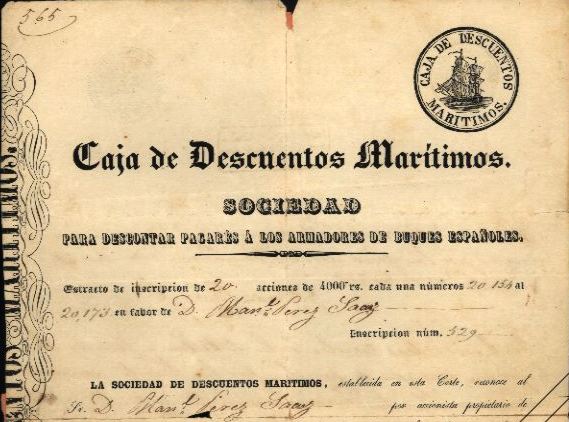 565
CAJA DE DESCUENTOS MARITIMOS.
Caja de Descuentos Marítimos.
SOCIEDAD
PARA DESCONTAR PAGARÉS Á LOS ARMADORES DE BUQUES ESPAÑOLES.
Estracto de inscripcion de 20 acciones de 4000 rs. cada una números 20,154 al
20,173 en favor de D. Man.l Perez Saez
Inscripcion núm. 529
LA SOCIEDAD DE DESCUENTOS MARITIMOS, establecida en esta Corte, reconoce al
Sr. D. Man.l Perez Saez por accionista propietario de